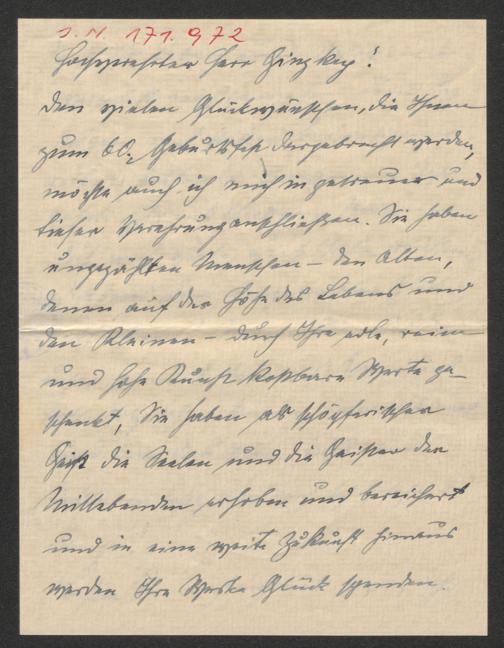 I.N. 171.972
Hochverehrter Herr Ginzkey!
Den vielen Glückwünschen, die Ihnen
zum 60. Geburtsfest dargebracht werden,
möchte auch ich mich in getreuer und
tiefer Verehrung anschließen. Sie haben
ungezählten Menschen – den Alten,
denen auf der Höhe des Lebens und
den Kleinen – durch Ihre edle, reine
und hohe Kunst kostbare Werte ge-
schenkt, Sie haben als schöpferischer
Geist die Seelen und die Geister der
Mitlebenden erhoben und bereichert
und in eine weite Zukunft hinaus
werden Ihre Werke Glück spenden.